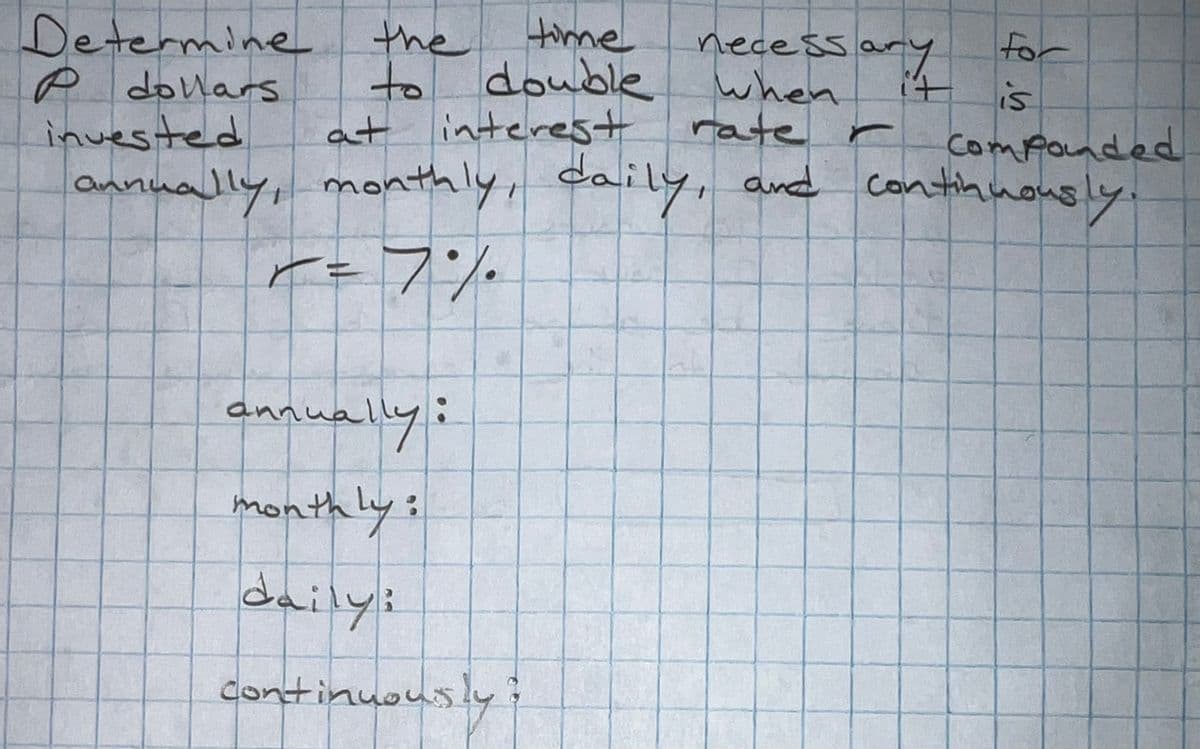 Determine the time necessary for
P dollars to double when it is
invested at interest rate r compounded
annually, monthly, daily, and continuously.
r = 7%
annually:
monthly:
daily:
continuously: